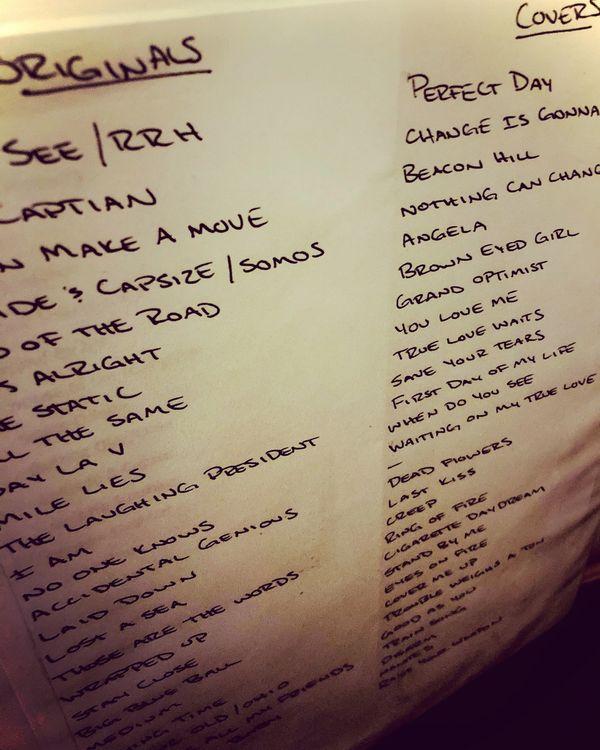 ORIGINALS
SEE / RRH
CAPTIAN
MAKE A MOVE
CAPSIZE / SOMOS
OF THE ROAD
ALRIGHT
STATIC
THE SAME
LA V
LIES
THE LAUGHING PRESIDENT
I AM
NO ONE KNOWS
ACCIDENTAL GENIOUS
LAID DOWN
LOST A SEA
THOSE ARE THE WORDS
WRAPPED UP
STAY CLOSE
BIG BLUE BALL
MEDIUM
TIME
OLD / OHIO
ALL MY FRIENDS
COVERS
PERFECT DAY
CHANGE IS GONNA
BEACON HILL
NOTHING CAN CHANG
ANGELA
BROWN EYED GIRL
GRAND OPTIMIST
YOU LOVE ME
TRUE LOVE WAITS
SAVE YOUR TEARS
FIRST DAY OF MY LIFE
WHEN DO YOU SEE
WAITING ON MY TRUE LOVE
—
DEAD FLOWERS
LAST KISS
CREEP
RING OF FIRE
CIGARETTE DAYDREAM
STAND BY ME
EYES ON FIRE
COVER ME UP
TROUBLE WEIGHS A TON
GOOD AS YOU
TRAIN SONG
DISARM
YOUR WEAPON